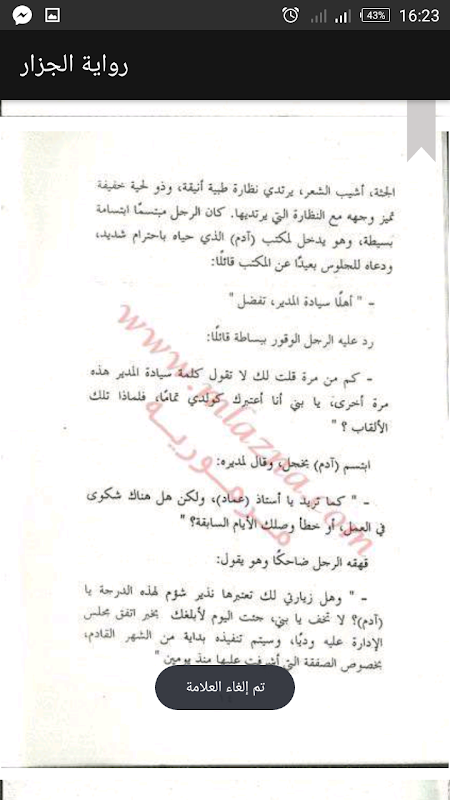 43%
16:23
رواية الجزار
الجثة، أشيب الشعر، يرتدي نظارة طبية أنيقة، وذو لحية خفيفة
تميز وجهه مع النظارة التي يرتديها. كان الرجل مبتسمًا ابتسامة
بسيطة، وهو يدخل لمكتب (آدم) الذي حياه باحترام شديد،
ودعاه للجلوس بعيدًا عن المكتب قائلًا:
- " أهلًا سيادة المدير، تفضل "
رد عليه الرجل الوقور ببساطة قائلًا:
- كم من مرة قلت لك لا تقول كلمة سيادة المدير هذه
مرة أخرى، يا بني أنا أعتبرك كولدي تمامًا، فلماذا تلك
الألقاب ؟ "
ابتسم (آدم) بخجل، وقال لمديره:
- " كما تريد يا أستاذ (عماد)، ولكن هل هناك شكوى
في العمل، أو خطأ وصلك الأيام السابقة؟ "
قهقه الرجل ضاحكًا وهو يقول:
- " وهل زيارتي لك تعتبرها نذير شؤم لهذه الدرجة يا
(آدم)؟ لا تخف يا بني، جئت اليوم لأبلغك بخبر اتفق مجلس
الإدارة عليه وديًا، وسيتم تنفيذه بداية من الشهر القادم،
بخصوص الصفقة التي أشرفت عليها منذ يومين "
www.mlazna.com
تم إلغاء العلامة